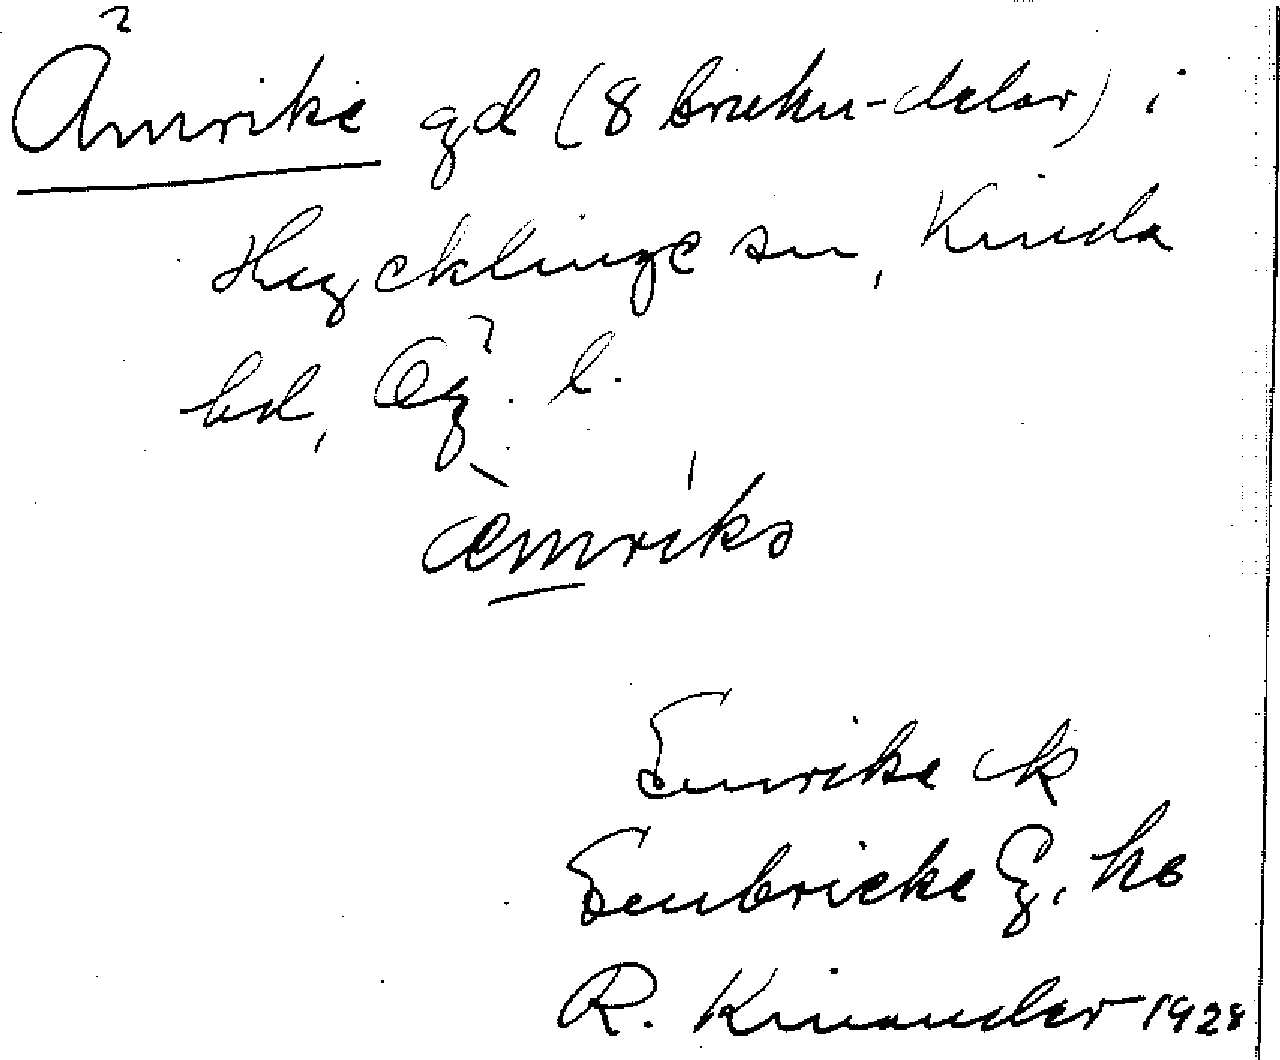 Ämrike gd (8 bruknu-delar) i
Hycklinge sn, Kinda
hd, Ög. l.
æ̀mríkə
Emrike ck
Embricke Eg, hs
R. Kinander 1928